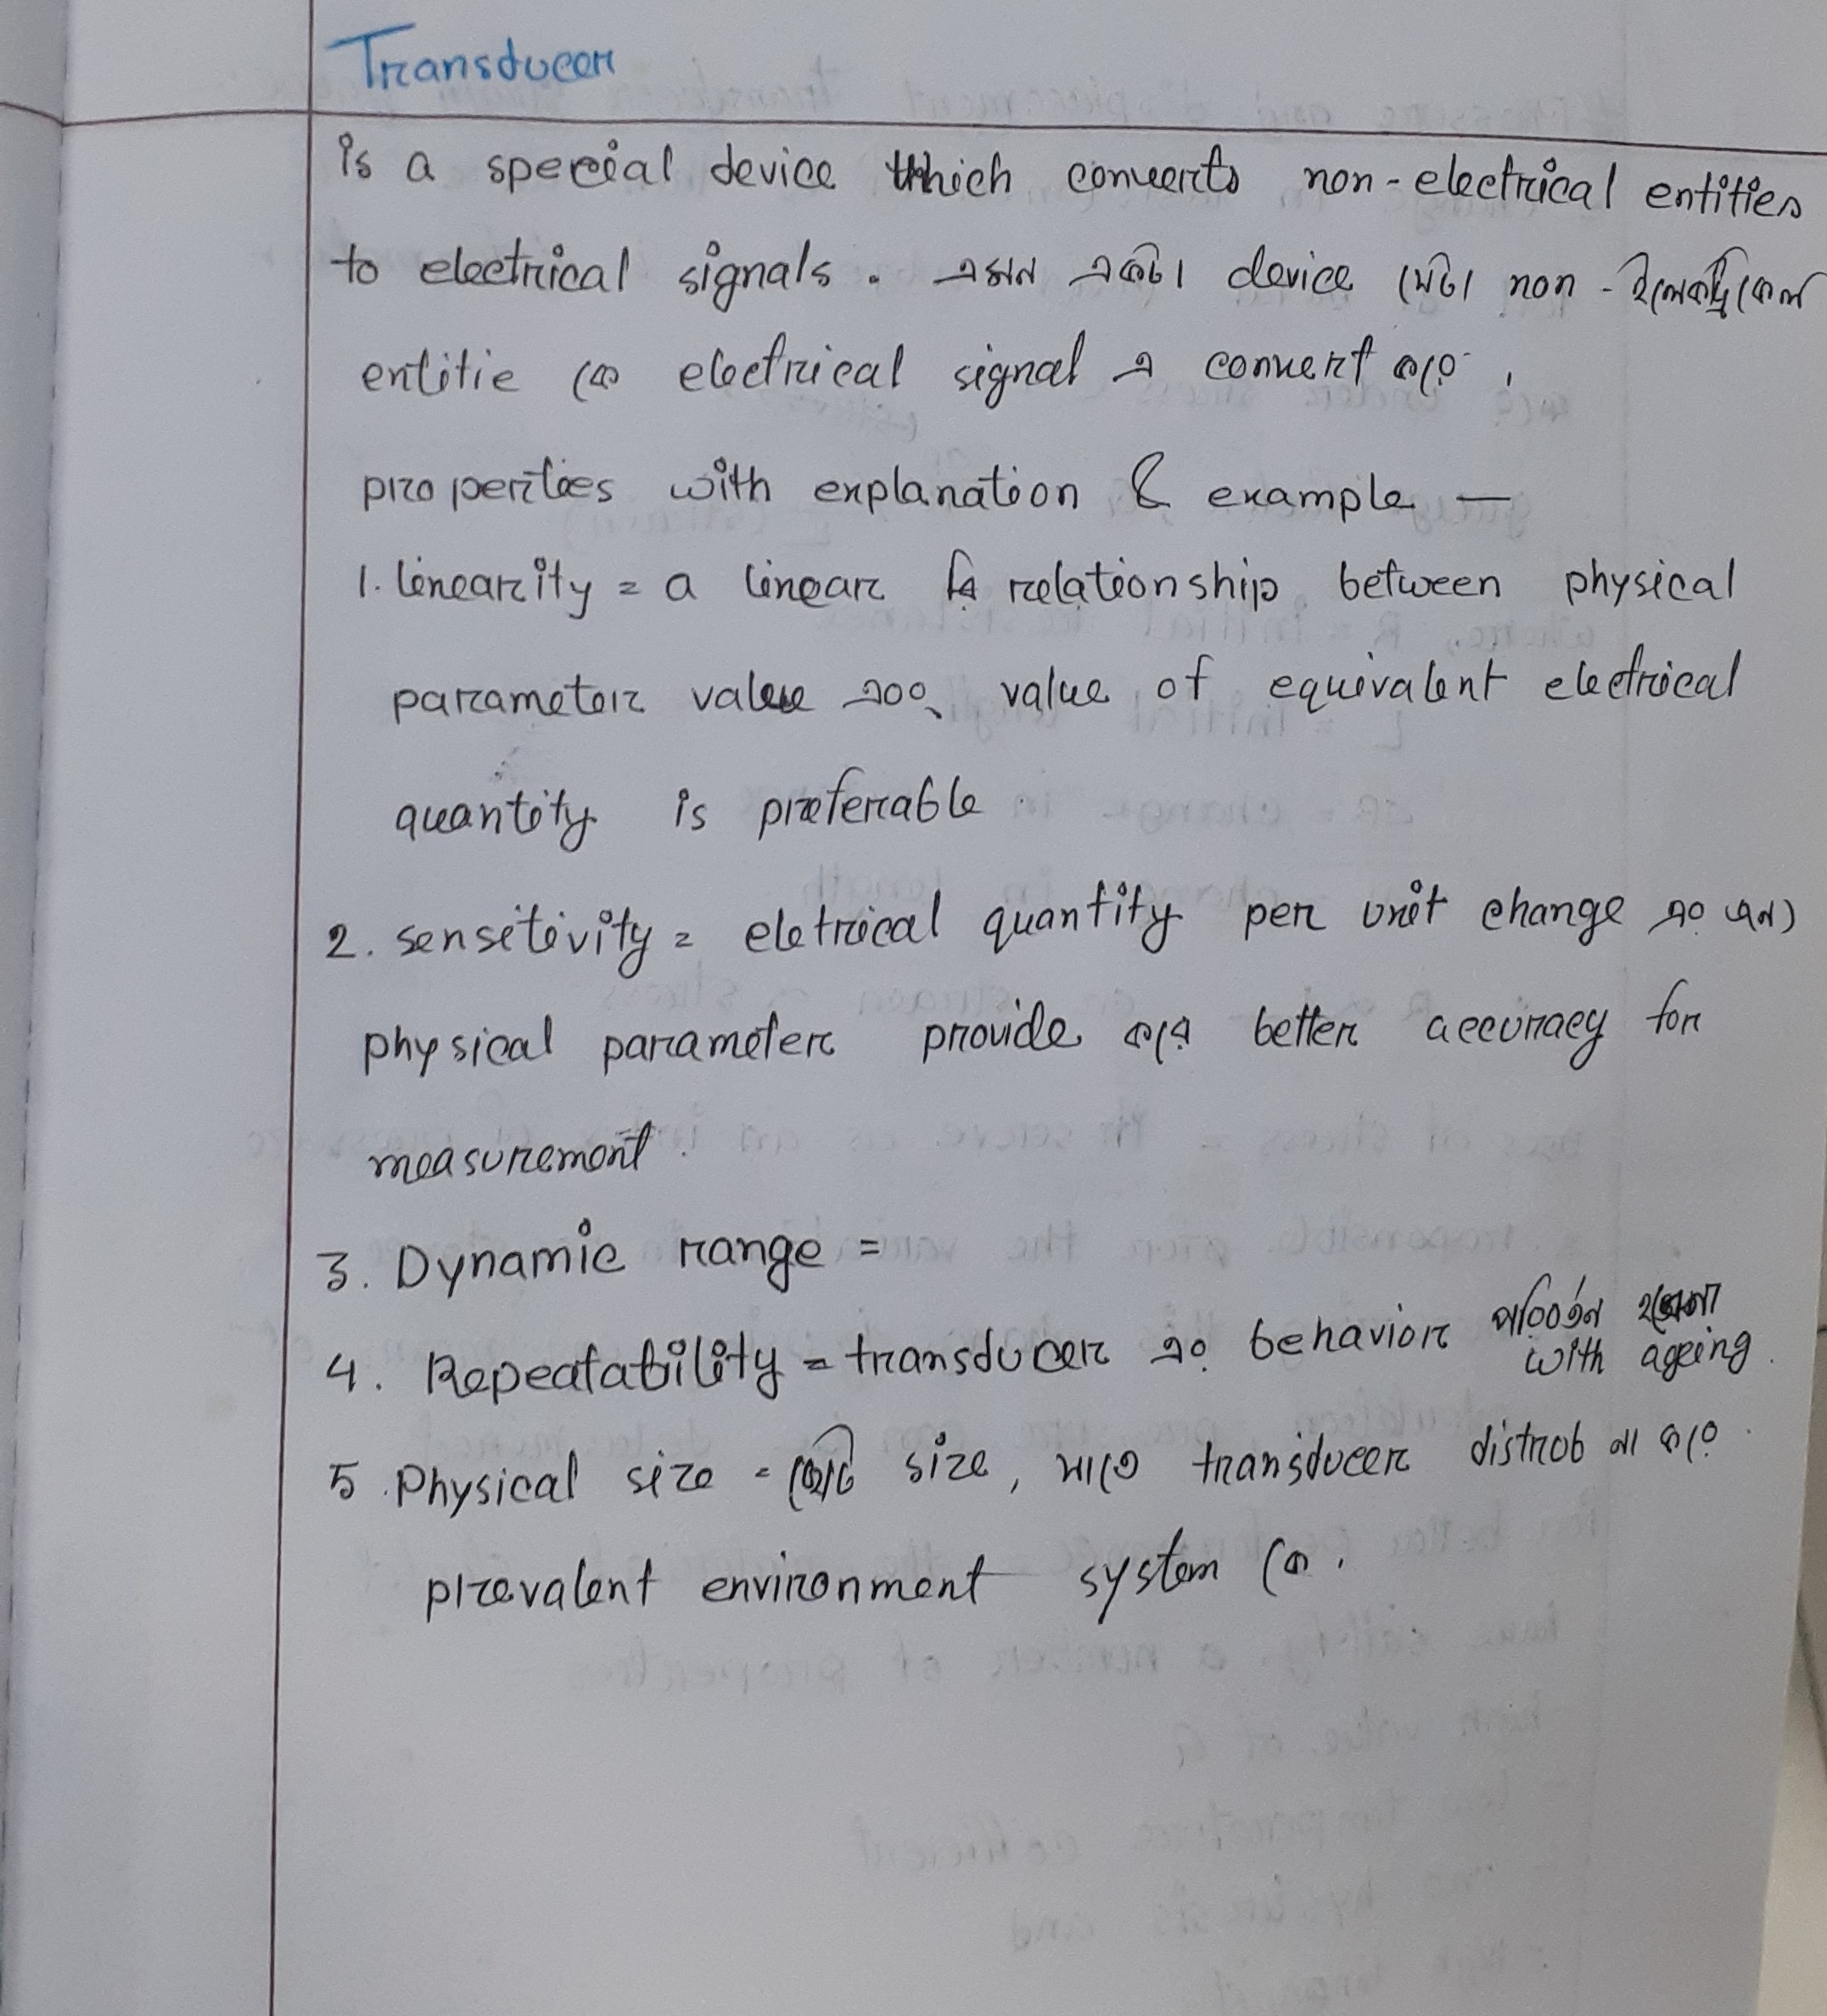 Transducer
is a special device which converts non-electrical entities
to electrical signals. এমন একটা device যেটা non-ইলেকট্রিকেল
entitie কে electrical signal এ convert করে।
properties with explanation & example —
1. linearity = a linear relationship between physical
parameter value এবং value of equivalent electrical
quantity is preferable.
2. sensitivity = eletrical quantity per unit change এর জন্য
physical parameter provide করে better accuracy for
measurement.
3. Dynamic range =
4. Repeatability = transducer এর behavior পরিবর্তন হবেনা
with ageing.
5. Physical size = ছোট size, যাতে transducer distrob না করে
prevalent environment system কে.